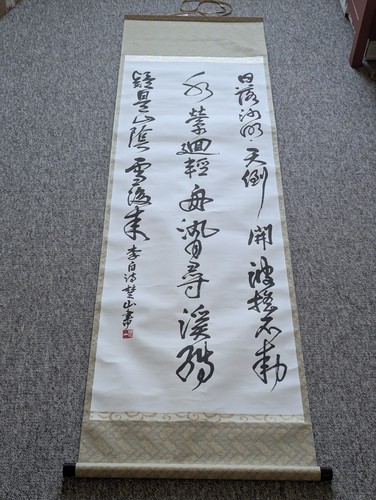 日落沙明天倒開波搖石動
水縈迴輕舟泛月尋溪轉
疑是山陰雪後來 李白诗楚山書